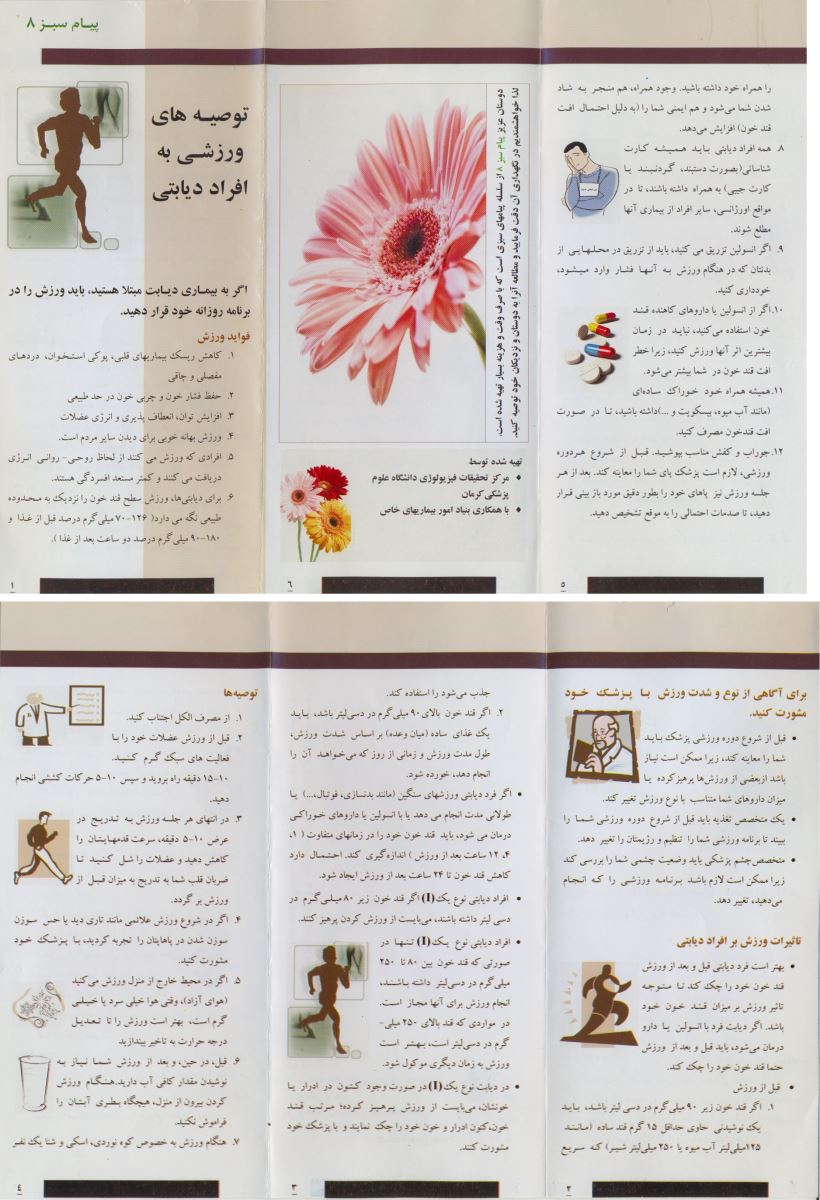 پیام سبز ۸
توصیه های
ورزشی به
افراد دیابتی
اگر به بیماری دیابت مبتلا هستید، باید ورزش را در
برنامه روزانه خود قرار دهید.
فواید ورزش
۱. کاهش ریسک بیماریهای قلبی، پوکی استخوان، دردهای
مفصلی و چاقی
۲. حفظ فشار خون و چربی خون در حد طبیعی
۳. افزایش توان، انعطاف پذیری و انرژی عضلات
۴. ورزش بهانه خوبی برای دیدن سایر مردم است.
۵. افرادی که ورزش می کنند از لحاظ روحی- روانی انرژی
دریافت می کنند و کمتر مستعد افسردگی هستند.
۶. برای دیابتی‌ها، ورزش سطح قند خون را نزدیک به محدوده
طبیعی نگه می دارد( ۱۲۶-۷۰ میلی‌گرم درصد قبل از غذا و
۱۸۰-۹۰ میلی‌گرم درصد دو ساعت بعد از غذا ).
۱
دوستان عزیز پیام سبز ۸ از سلسله پیامهای سبزی است که با صرف وقت و هزینه بسیار تهیه شده است.
لذا خواهشمندیم در نگهداری آن دقت فرمایید و مطالعه آنرا به دوستان و نزدیکان خود توصیه کنید.
تهیه شده توسط
♦ مرکز تحقیقات فیزیولوژی دانشگاه علوم
پزشکی کرمان
♦ با همکاری بنیاد امور بیماریهای خاص
۶
را همراه خود داشته باشید. وجود همراه، هم منجر به شاد
شدن شما می‌شود و هم ایمنی شما را (به دلیل احتمال افت
قند خون) افزایش می‌دهد.
۸. همه افراد دیابتی باید همیشه کارت
شناسائی(بصورت دستبند، گردنبند یا
کارت جیبی) به همراه داشته باشند، تا در
مواقع اورژانسی، سایر افراد از بیماری آنها
مطلع شوند.
۹. اگر انسولین تزریق می کنید، باید از تزریق در محلهایی از
بدنتان که در هنگام ورزش به آنها فشار وارد میشود،
خودداری کنید.
۱۰. اگر از انسولین یا داروهای کاهنده قند
خون استفاده می‌کنید، نباید در زمان
بیشترین اثر آنها ورزش کنید، زیرا خطر
افت قند خون در شما بیشتر می‌شود.
۱۱. همیشه همراه خود خوراک ساده‌ای
(مانند آب میوه، بیسکویت و ...)داشته باشید، تا در صورت
افت قندخون مصرف کنید.
۱۲. جوراب و کفش مناسب بپوشید. قبل از شروع هردوره
ورزشی، لازم است پزشک پای شما را معاینه کند. بعد از هر
جلسه ورزش نیز پاهای خود را بطور دقیق مورد باز بینی قرار
دهید، تا صدمات احتمالی را به موقع تشخیص دهید.
۵
برای آگاهی از نوع و شدت ورزش با پزشک خود
مشورت کنید.
• قبل از شروع دوره ورزشی پزشک باید
شما را معاینه کند، زیرا ممکن است نیاز
باشد ازبعضی از ورزش‌ها پرهیزکرده یا
میزان داروهای شما متناسب با نوع ورزش تغییر کند.
• یک متخصص تغذیه باید قبل از شروع دوره ورزشی شما را
ببیند تا برنامه ورزشی شما را تنظیم و رژیمتان را تغییر دهد.
• متخصص چشم پزشکی باید وضعیت چشمی شما را بررسی کند
زیرا ممکن است لازم باشد برنامه ورزشی را که انجام
می‌دهید، تغییر دهد.
تاثیرات ورزش بر افراد دیابتی
• بهتر است فرد دیابتی قبل و بعد از ورزش
قند خون خود را چک کند تا متوجه
تاثیر ورزش بر میزان قند خون خود
باشد. اگر دیابت فرد با انسولین یا دارو
درمان می‌شود، باید قبل و بعد از ورزش
حتما قند خون خود را چک کند.
• قبل از ورزش
۱. اگر قند خون زیر ۹۰ میلی‌گرم در دسی لیتر باشد، باید
یک نوشیدنی حاوی حداقل ۱۵ گرم قند ساده (مانند
۱۲۵میلی‌لیتر آب میوه یا ۲۵۰ میلی‌لیتر شیر) که سریع
۲
جذب می‌شود را استفاده کند.
۲. اگر قند خون بالای ۹۰ میلی‌گرم در دسی‌لیتر باشد، باید
یک غذای ساده (میان وعده) بر اساس شدت ورزش،
طول مدت ورزش و زمانی از روز که می‌خواهد آن را
انجام دهد، خورده شود.
• اگر فرد دیابتی ورزشهای سنگین (مانند بدنسازی، فوتبال،...) یا
طولانی مدت انجام می دهد یا با انسولین یا داروهای خوراکی
درمان می شود، باید قند خون خود را در زمانهای متفاوت ( ۱،
۴، ۱۲ ساعت بعد از ورزش ) اندازه‌گیری کند. احتمال دارد
کاهش قند خون تا ۲۴ ساعت بعد از ورزش ایجاد شود.
• افراد دیابتی نوع یک(I) اگر قند خون زیر ۸۰ میلی گرم در
دسی لیتر داشته باشند، می‌بایست از ورزش کردن پرهیز کنند.
• افراد دیابتی نوع یک(I) تنها در
صورتی که قند خون بین ۸۰ تا ۲۵۰
میلی‌گرم در دسی‌لیتر داشته باشند،
انجام ورزش برای آنها مجاز است.
در مواردی که قند بالای ۲۵۰ میلی-
گرم در دسی‌لیتر است، بهتر است
ورزش به زمان دیگری موکول شود.
• در دیابت نوع یک(I) در صورت وجود کتون در ادرار یا
خونشان، می‌بایست از ورزش پرهیز کرده؛ مرتب قند
خون،کتون ادرار و خون خود را چک نمایند و با پزشک خود
مشورت کنند.
۳
توصیه‌ها
۱. از مصرف الکل اجتناب کنید.
۲. قبل از ورزش عضلات خود را با
فعالیت های سبک گرم کنید.
۱۵-۱۰ دقیقه راه بروید و سپس ۱۰-۵ حرکات کششی انجام
دهید.
۳. در انتهای هر جلسه ورزش به تدریج در
عرض ۱۰-۵ دقیقه، سرعت قدمهایتان را
کاهش دهید و عضلات را شل کنید تا
ضربان قلب شما به تدریج به میزان قبل از
ورزش بر گردد.
۴. اگر در شروع ورزش علائمی مانند تاری دید یا حس سوزن
سوزن شدن در پاهایتان را تجربه کردید، با پزشک خود
مشورت کنید.
۵. اگر در محیط خارج از منزل ورزش می‌کنید
(هوای آزاد)، وقتی هوا خیلی سرد یا خیلی
گرم است، بهتر است ورزش را تا تعدیل
درجه حرارت به تاخیر بیندازید
۶. قبل، در حین، و بعد از ورزش شما نیاز به
نوشیدن مقدار کافی آب دارید.هنگام ورزش
کردن بیرون از منزل، هیچگاه بطری آبتان را
فراموش نکنید.
۷. هنگام ورزش به خصوص کوه نوردی، اسکی و شنا یک نفر
۴